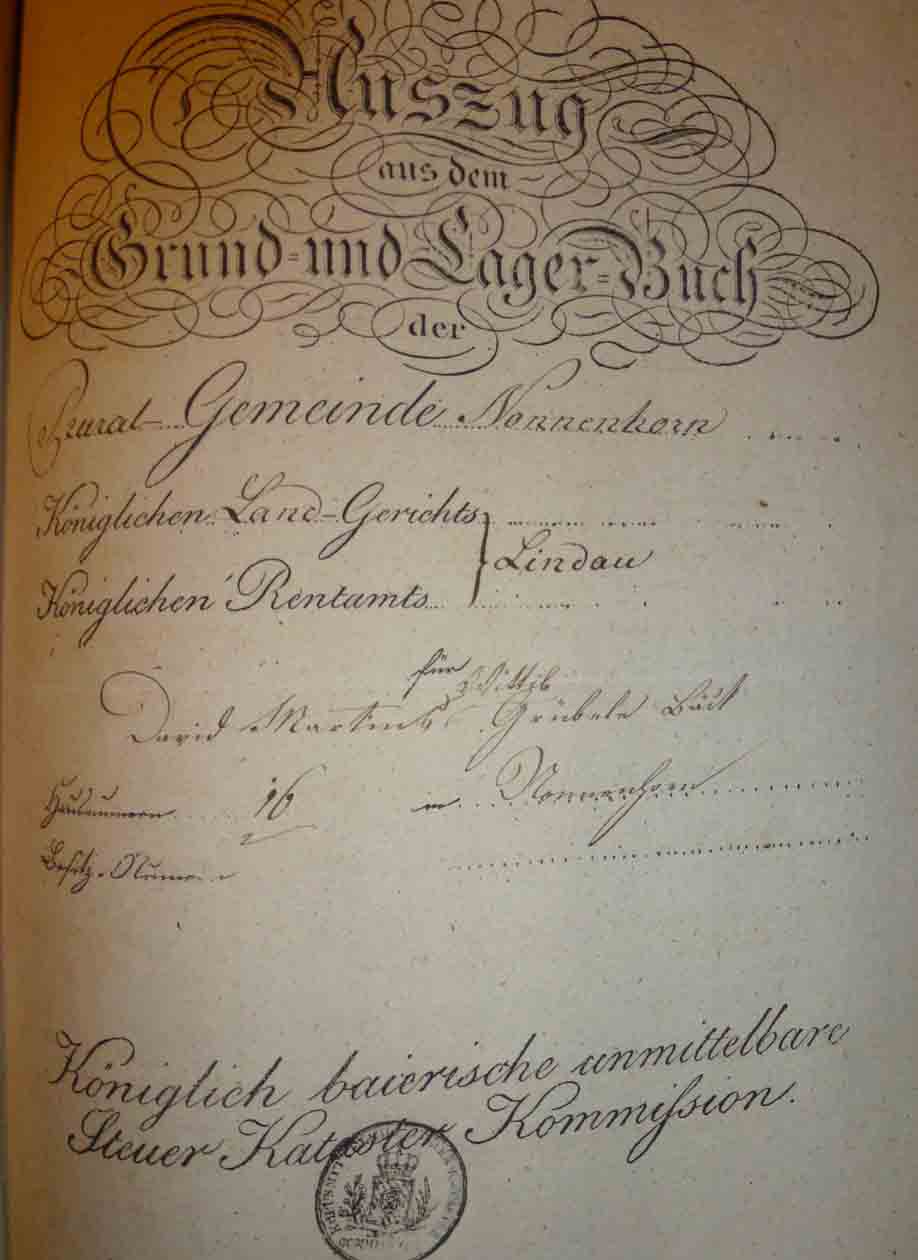 Auszug
aus dem
Grund=und Lager=Buch
der
Rural-Gemeinde Nonnenhorn
Königlichen Land-Gerichts
Lindau
Königlichen Rentamts
für
Wittib
David Martins Grübele Bäck
Hausnummern 16 in Nonnenhorn
Besitz-Numern
Königlich baierische unmittelbare
Steuer Kataster Kommißion.